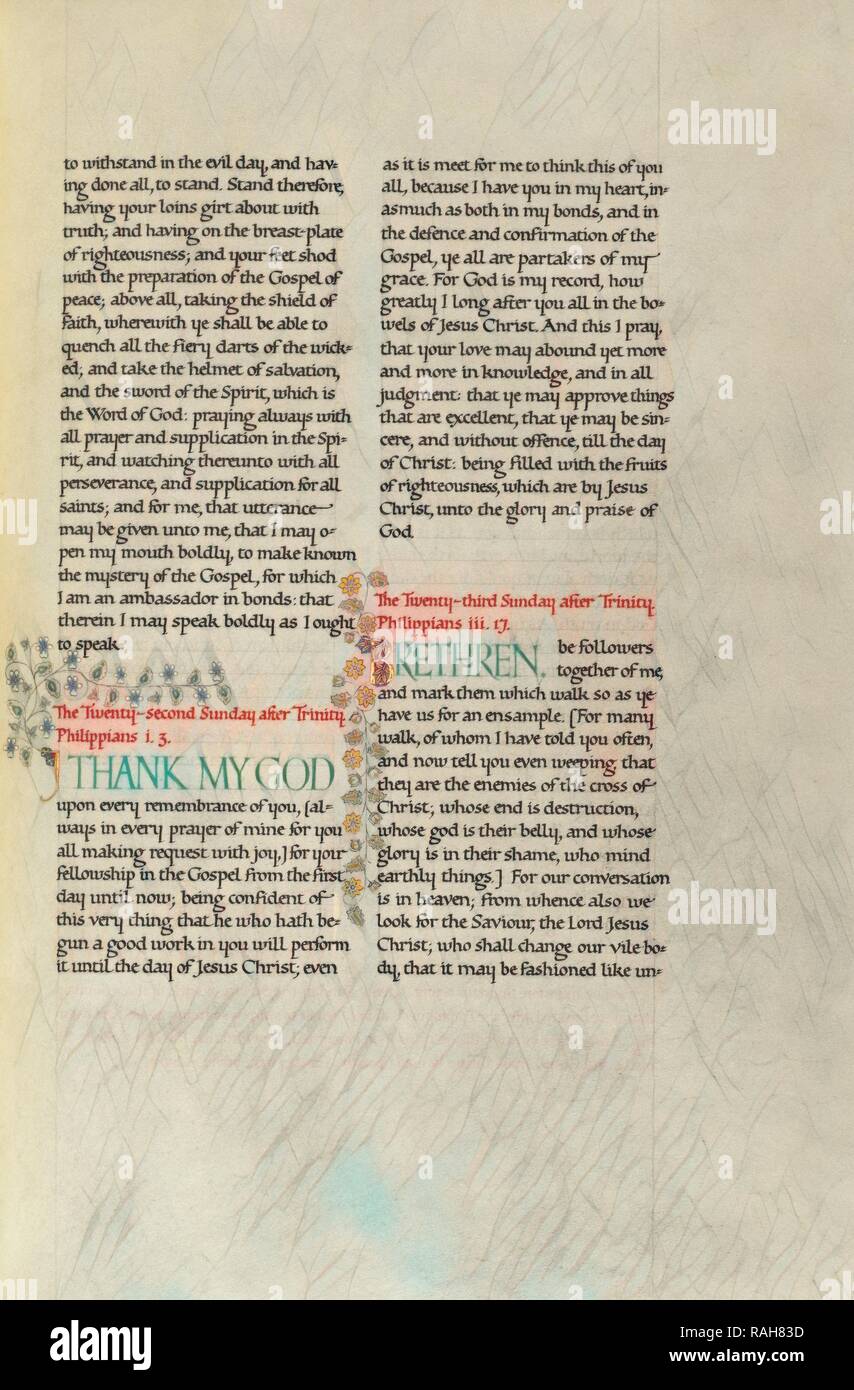 to withstand in the evil day, and hav=
ing done all, to stand. Stand therefore,
having your loins girt about with
truth; and having on the breast-plate
of righteousness; and your feet shod
with the preparation of the Gospel of
peace; above all, taking the shield of
faith, wherewith ye shall be able to
quench all the fiery darts of the wick=
ed; and take the helmet of salvation,
and the sword of the Spirit, which is
the Word of God: praying always with
all prayer and supplication in the Spi=
rit, and watching thereunto with all
perseverance, and supplication for all
saints; and for me, that utterance
may be given unto me, that I may o=
pen my mouth boldly, to make known
the mystery of the Gospel, for which
I am an ambassador in bonds: that
therein I may speak boldly as I ought
to speak.
The Twenty-second Sunday after Trinity.
Philippians i. 3.
I THANK MY GOD
upon every remembrance of you, [al=
ways in every prayer of mine for you
all making request with joy,] for your
fellowship in the Gospel from the first
day until now; being confident of
this very thing that he who hath be=
gun a good work in you will perform
it until the day of Jesus Christ; even
as it is meet for me to think this of you
all, because I have you in my heart, in=
asmuch as both in my bonds, and in
the defence and confirmation of the
Gospel, ye all are partakers of my
grace. For God is my record, how
greatly I long after you all in the bo=
wels of Jesus Christ. And this I pray,
that your love may abound yet more
and more in knowledge, and in all
judgment: that ye may approve things
that are excellent, that ye may be sin=
cere, and without offence, till the day
of Christ: being filled with the fruits
of righteousness, which are by Jesus
Christ, unto the glory and praise of
God.
The Twenty-third Sunday after Trinity.
Philippians iii. 17.
BRETHREN, be followers
together of me,
and mark them which walk so as ye
have us for an ensample. [For many
walk, of whom I have told you often,
and now tell you even weeping that
they are the enemies of the cross of
Christ; whose end is destruction,
whose god is their belly, and whose
glory is in their shame, who mind
earthly things.] For our conversation
is in heaven; from whence also we
look for the Saviour, the Lord Jesus
Christ; who shall change our vile bo=
dy, that it may be fashioned like un=
alamy
alamy
alamy
Image ID: RAH83D
www.alamy.com